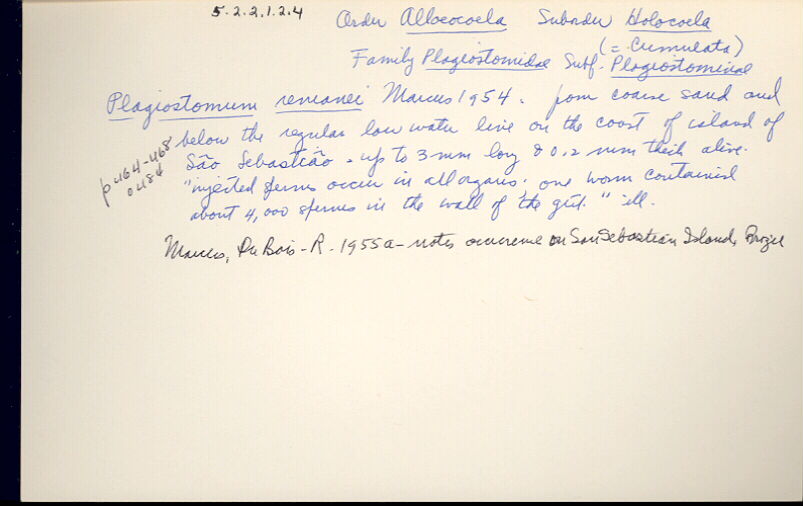 5.2.2.1.2.4
Order Alloeocoela Suborder Holocoela
(= Cumulata)
Family Plagiostomidae Subf. Plagiostominae
Plagiostomum remanei Marcus 1954. from coarse sand and
below the regular low water line on the coast of island of
São Sebastião - up to 3 mm long & 0.2 mm thick alive.
"injected sperms occur in all organs; one worm contained
about 4,000 sperms in the wall of the gut." ill.
p 464-468
Marcus, Du Bois-R. 1955a - notes occurence on San Sebastian Island, Brazil